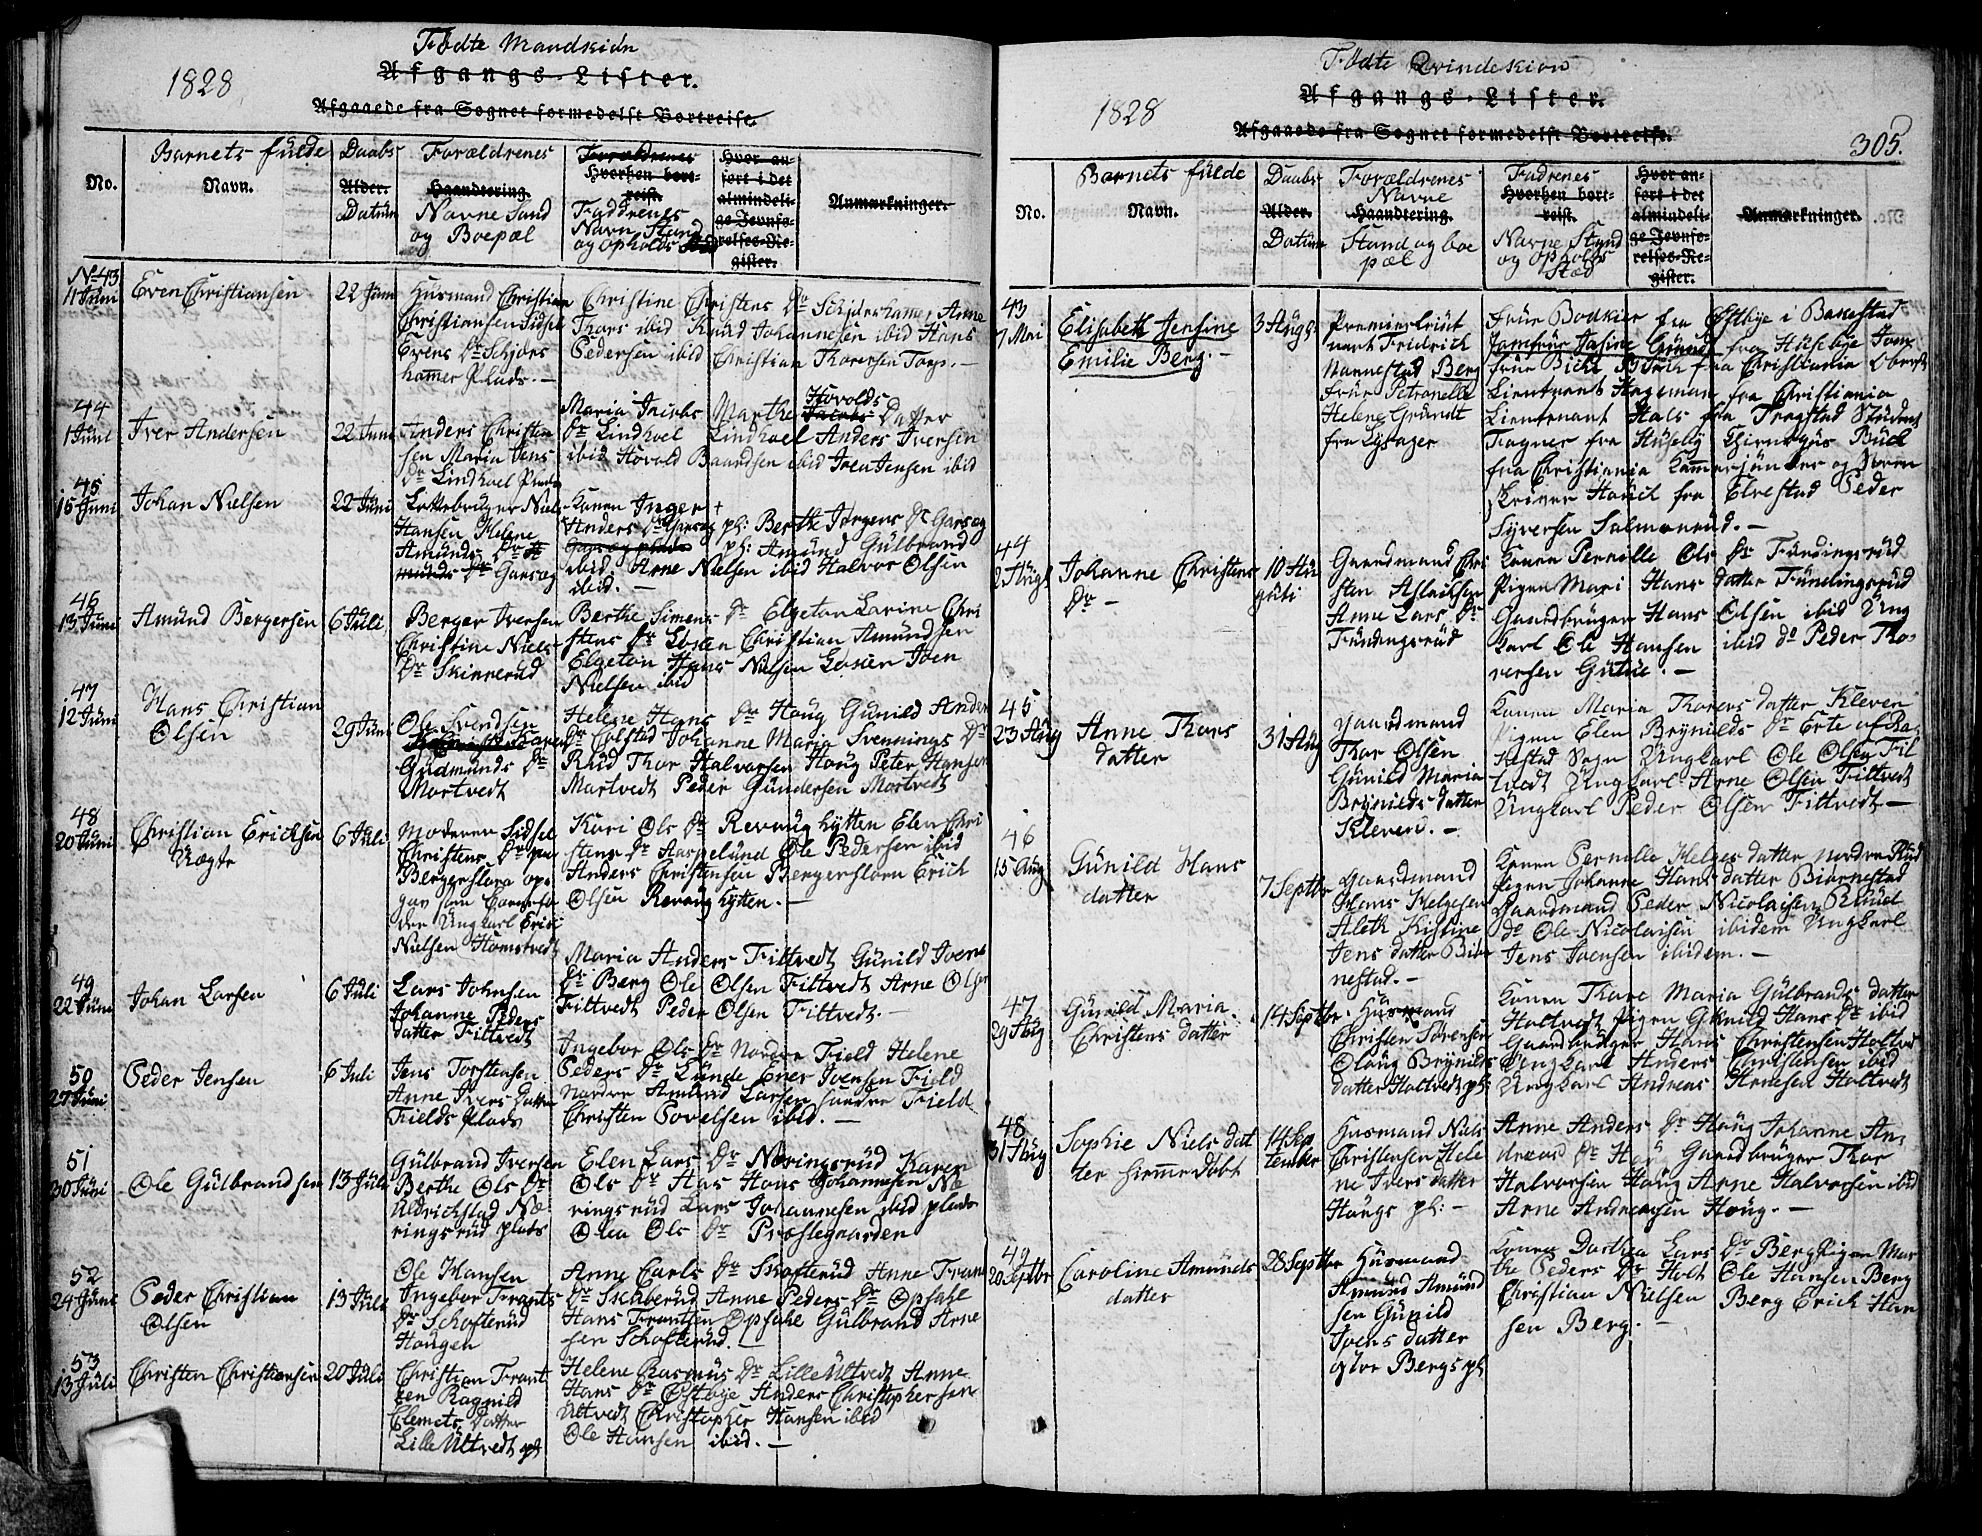 Fødte Mandkiøn
1828
Afgangs-Lister.
Afgaaede fra Sognet formedelst Bortreise.
No.
Barnets fulde
Navn.
Daabs
Alder.
Datum
Forældrenes
Haandtering.
Navne Stand
og Boepæl
Forældrenes
Hvorhen bort-
reist.
Faddrenes
Navn Stand
og opholds
Hvor an-
ført i det
almindeli-
ge Jevnfø-
relses-Re-
gister.
Anmærkninger.
No 43
11 Juni
Even Christiansen
22 Juni
Huusmand Christian
Christiansen Sidsel
Evens Dr Schjørs
hamer Plads. -
Christine Christens Dr Schjørshamer, Anne
Thors ibid Knud Johannesen ibid Hans
Pedersen ibid Christian Thoresen Torp. -
44
1 Juni
Iver Andersen
22 Juni
Anders Christen
sen Maria Jens
Dr Lindhoel Plads
Maria Jacobs Marthe Hovolds Jacobs Datter
Dr Lindhoel Lindhoel Anders Iversen
ibid Hovold Baardsen ibid Joen Jensen ibid
45
15 Juni
Johan Nielsen
22 Juni
Lekkebruger Niels
Hansen Helene
Amunds Dr A
munds Dr Garseg
Konen Inger +
Anders Dr Garseg pl: Berthe Jørgens Dr Garseg
Garseg plads pl: Amund Gulbrand
ibid Arne Nielsen ibid Halvor Olsen
ibid. -
46
13 Juni
Amund Bergersen
6 Juli
Berger Iversen
Christine Niels
Dr Skinnerud
Berthe Simens Dr Elgeton Larine Chri
stens Dr Losen Christian Amundsen
Elgeton Hans Nielsen Losen Joen
Nielsen ibid
47
12 Juni
Hans Christian
Olsen
29 Juni
Ole Svendsen
Karen
Gudmunds Dr
Mortvedt
Helene Hans Dr Houg Gunild Anders
Dr Colstad Johanne Maria Svennings Dr
Ruud Thor Halvorsen Houg Peter Hansen
Martvedt Peder Gundersen Mortvedt
48
20 Juni
Christian Erichsen
Uægte
6 Juli
Moderen Sidsel
Christens Dr paa
Bergerflora op-
gav som Barnefa
der Ungkarl Eric
Nielsen Homstvedt
Kari Ols Dr Revaug hytten Elen Chri
stens Dr Aaspelund Ole Pedersen ibid
Anders Christensen Bergerfloren Erich
Olsen Revaug hytten. -
49
22 Juni
Johan Larsen
6 Juli
Lars Johnsen
Johanne Peders
datter Filtvedt
Maria Anders Filtvedt Gunild Joens
Dr Berg Ole Olsen Filtvedt Arne Olsen
Filtvedt Peder Olsen Filtvedt. -
50
27 Juni
Peder Jensen
6 Juli
Jens Torstensen
Anne Ivers Datter
Fields Plads
Ingebor Ols Dr Nordre Field Helene
Peders Dr Lunde Ener Joensen Field
Nordre Amund Larsen søndre Field
Christen Povelsen ibid. -
51
30 Juni
Ole Gulbrandsen
13 Juli
Gulbrand Iversen
Berthe Ols Dr
Uldrichstad Næ
ringsrud plads
Elen Lars Dr Næringsrud Karen
Ols Dr Aas Hans Johannesen Næ
ringsrud Lars Johannesen ibid plads
Olea Ols Dr Præstegaarden
52
24 Juni
Peder Christian
Olsen
13 Juli
Ole Hansen
Ingebor Frants
Dr Schofterud
Haugen
Anne Carls Dr Skofterud Anne Frans
Dr Skuberud Anne Peders Dr Opsahl
Hans Frantsen Opsahe Gulbrand Arne
sen Schofterud. -
53
13 Juli
Christen Christiansen
20 Juli
Christian Frant
zen Ragnild
Clemets Datter
Lille Ultvedt pl
Helene Rasmus Dr Lille Ultvedt Anne
Hans Dr Østbye Anders Christophersen
Ultvedt Christopher Hansen ibid
Ole Hansen ibid. -
Fødte Qvindekiøn
1828
Afgangs-Lister.
Afgaaede fra Sognet formedelst Bortreise.
305.
No.
Barnets fulde
Navn.
Daabs
Alder.
Datum
Forældrenes
Navne
Haandtering.
Stand og boe
pæl
Fadrenes
Hvorhen bort-
reist.
Navne Stand
og opholds
Stæd
Hvor an-
ført i det
almindeli-
ge Jevnfø-
relses-Re-
gister.
Anmærkninger.
43
7 Mai
Elisabeth Jensine
Emilie Berg. -
3 Augs
Premierlieut
nant Fridrich
Nannestad Berg
Frue Petronelle
Helene Grundt
fra Lysager
Frue Bodkier fra Østbye i Bakestad
Jomfrue Jasine Grundt fra Husebye Jom
frue Birch fra Christiania Oberst
Lieutnant Hageman fra Christiania
Lieutenant Hals fra Trøgstad Student
Fagner fra Huseby Chirurgus Buck
fra Christiania Kammerjunker og Soren
skriver Hauch fra Elvestad Peder
Syversen Salmonrud. -
44
2 Augs
Johanne Christens
Dr -
10 Au
gusti
Gaardmand Chri
sten Aslacksen
Anne Lars Dr
Fundingsrud
Konen Pernille Ols Dr Fundingsrud
Pigen Mari Hans datter Fundingsrud
Gaardbruger Hans Olsen ibid Ung
karl Ole Hansen ibid do Peder Tho-
versen Gutue. -
45
23 Aug
Anne Thors
datter
31 Aug
Gaardmand
Thor Olsen
Gunild Maria
Brynilds datter
Kleven. -
Konen Maria Thorers datter Kleven
Pigen Elen Brynilds Dr Erte af Ra-
kestad Sogn Ungkarl Ole Olsen Fil
tvedt Ungkarl Arne Olsen Filtvedt
Ungkarl Peder Olsen Filtvedt -
46
15 Aug
Gunild Hans
datter
7 Septbr
Gaardmand
Hans Helgesen
Aleth Kistine
Jens datter Biør
nestad. -
Konen Pernelle Helges datter Nordre Rud
Pigen Johanne Hans datter Biørnestad
Gaardmand Peder Nicolaisen Ruud
do Ole Nicolaisen ibidem Ungkarl
Jens Joensen ibidem. -
47
29 Aug
Gunild Maria
Christens datter
14 Septbr
Husmand
Christen Sørensen
Olaug Brynilds
datter Holtvedt pl:
Konen Thore Maria Gulbrands datter
Holtvedt Pigen Gunild Hans Dr ibid
Gaardbruger Hans Christensen Holtvedt
Ungkarl Anders Christensen ibid
Ungkarl Andreas Arnesen Holtvedt
48
31 Aug
Sophie Niels dat
ter hiemedøbt
14 Sep
tember
Husmand Niels
Christensen Hele
ne Ivers datter
Haugs pl: -
Anne Anders Dr Haug Johanne An-
dreas Dr Haug Gaardbruger Thor
Halvorsen Haug Arne Halvorsen ibid
Arne Andreasen Haug. -
49
20 Septbr
Caroline Amunds
datter
28 Septbr
Husmand
Amund Amund
sen Gunild
Joens datter
Berg pl
Konen Dorthea Lars Dr Berg Pigen Mar
the Peders Dr Holt Ole Hansen Berg
Christian Nielsen Berg Erich Han
sen Berg. -